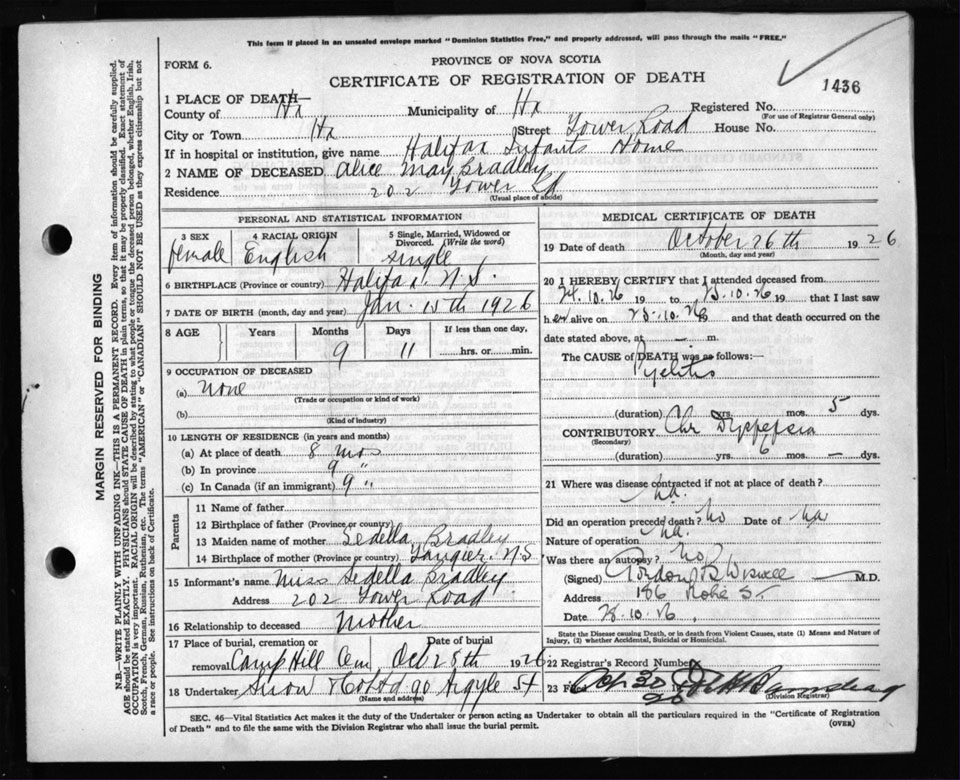 This form if placed in an unsealed envelope marked "Dominion Statistics Free," and properly addressed, will pass through the mails "FREE."
FORM 6.
PROVINCE OF NOVA SCOTIA
CERTIFICATE OF REGISTRATION OF DEATH
1436
1 PLACE OF DEATH—
County of Hx Municipality of Hx Registered No.
(For use of Registrar General only)
City or Town Hx Street Tower Road House No.
If in hospital or institution, give name Halifax Infants Home
2 NAME OF DECEASED Alice May Bradley
Residence 202 Tower Rd
(Usual place of abode)
PERSONAL AND STATISTICAL INFORMATION
3 SEX 4 RACIAL ORIGIN 5 Single, Married, Widowed or Divorced. (Write the word)
female English single
6 BIRTHPLACE (Province or country) Halifax N.S.
7 DATE OF BIRTH (month, day and year) Jan. 15th 1926
8 AGE Years Months Days If less than one day,
9 11 hrs. or min.
9 OCCUPATION OF DECEASED
(a) None
(Trade or occupation or kind of work)
(b)
(Kind of industry)
10 LENGTH OF RESIDENCE (in years and months)
(a) At place of death 8 mos
(b) In province 9 "
(c) In Canada (if an immigrant) 9 "
Parents
11 Name of father
12 Birthplace of father (Province or country)
13 Maiden name of mother Sedella Bradley
14 Birthplace of mother (Province or country) Tangier N.S.
15 Informant's name Miss Sedella Bradley
Address 202 Tower Road
16 Relationship to deceased Mother
17 Place of burial, cremation or removal Camp Hill Cem Date of burial Oct 28th 1926
18 Undertaker Snow & Co Ltd 90 Argyle St
(Name and address)
MEDICAL CERTIFICATE OF DEATH
19 Date of death October 26th 1926
(Month, day and year)
20 I HEREBY CERTIFY that I attended deceased from
24.10.26 19 to 25.10.26 19 that I last saw
her alive on 25.10.26 and that death occurred on the
date stated above, at — m.
The CAUSE of DEATH was as follows:
Pyelitis
(duration) yrs. mos. 5 dys.
CONTRIBUTORY Chr Dyspepsia
(Secondary)
(duration) yrs. 6 mos. — dys.
21 Where was disease contracted if not at place of death?
na.
Did an operation precede death? No Date of na
Nature of operation na.
Was there an autopsy? No
(Signed) Gordon B Wiswell M.D.
Address 186 St
Date 28.10.26
State the Disease causing Death, or in death from Violent Causes, state (1) Means and Nature of
Injury, (2) whether Accidental, Suicidal or Homicidal.
22 Registrar's Record Number
23 Filed 30
26
(Division Registrar)
SEC. 46—Vital Statistics Act makes it the duty of the Undertaker or person acting as Undertaker to obtain all the particulars required in the "Certificate of Registration
of Death" and to file the same with the Division Registrar who shall issue the burial permit. (OVER)
MARGIN RESERVED FOR BINDING
N.B.—WRITE PLAINLY WITH UNFADING INK—THIS IS A PERMANENT RECORD. Every item of information should be carefully supplied.
AGE should be stated EXACTLY. PHYSICIANS should STATE CAUSE OF DEATH in plain terms, so that it may be properly classified. Exact statement of
OCCUPATION is very important. RACIAL ORIGIN will be described by stating to what people or tongue the deceased person belonged, whether English, Irish,
Scotch, French, German, Russian, Ruthenian, etc. The terms "AMERICAN" or "CANADIAN" SHOULD NOT BE USED as they express citizenship but not
a race or people. See instructions on back of Certificate.